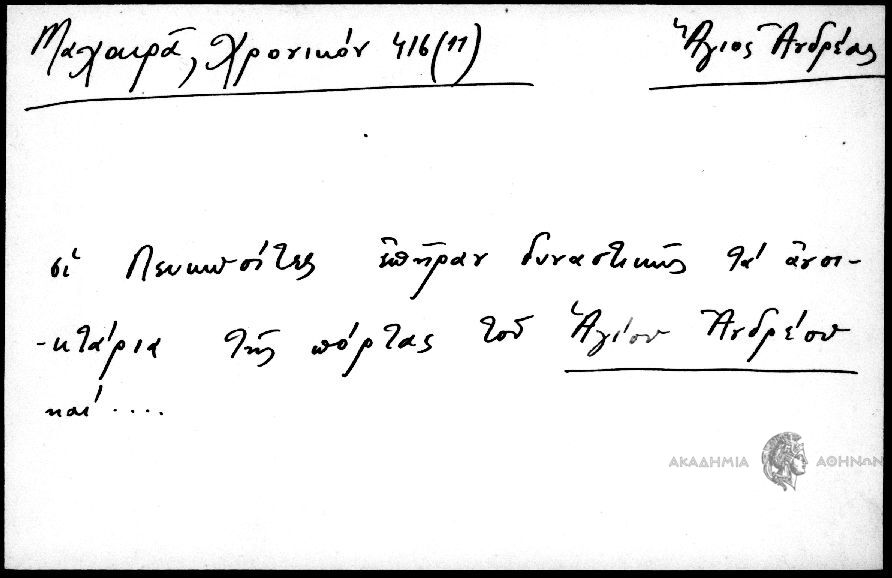 Μαχαιρᾶ, Χρονικόν 416(11)
Ἅγιος Ἀνδρέας
οἱ Λευκωσίτες ἐπῆραν δυναστικῆς τὰ ἀνοι-
-κτάρια τῆς πόρτας τοῦ Ἁγίου Ἀνδρέου
καὶ ....
ΑΚΑΔΗΜΙΑ ΑΘΗΝΩΝ